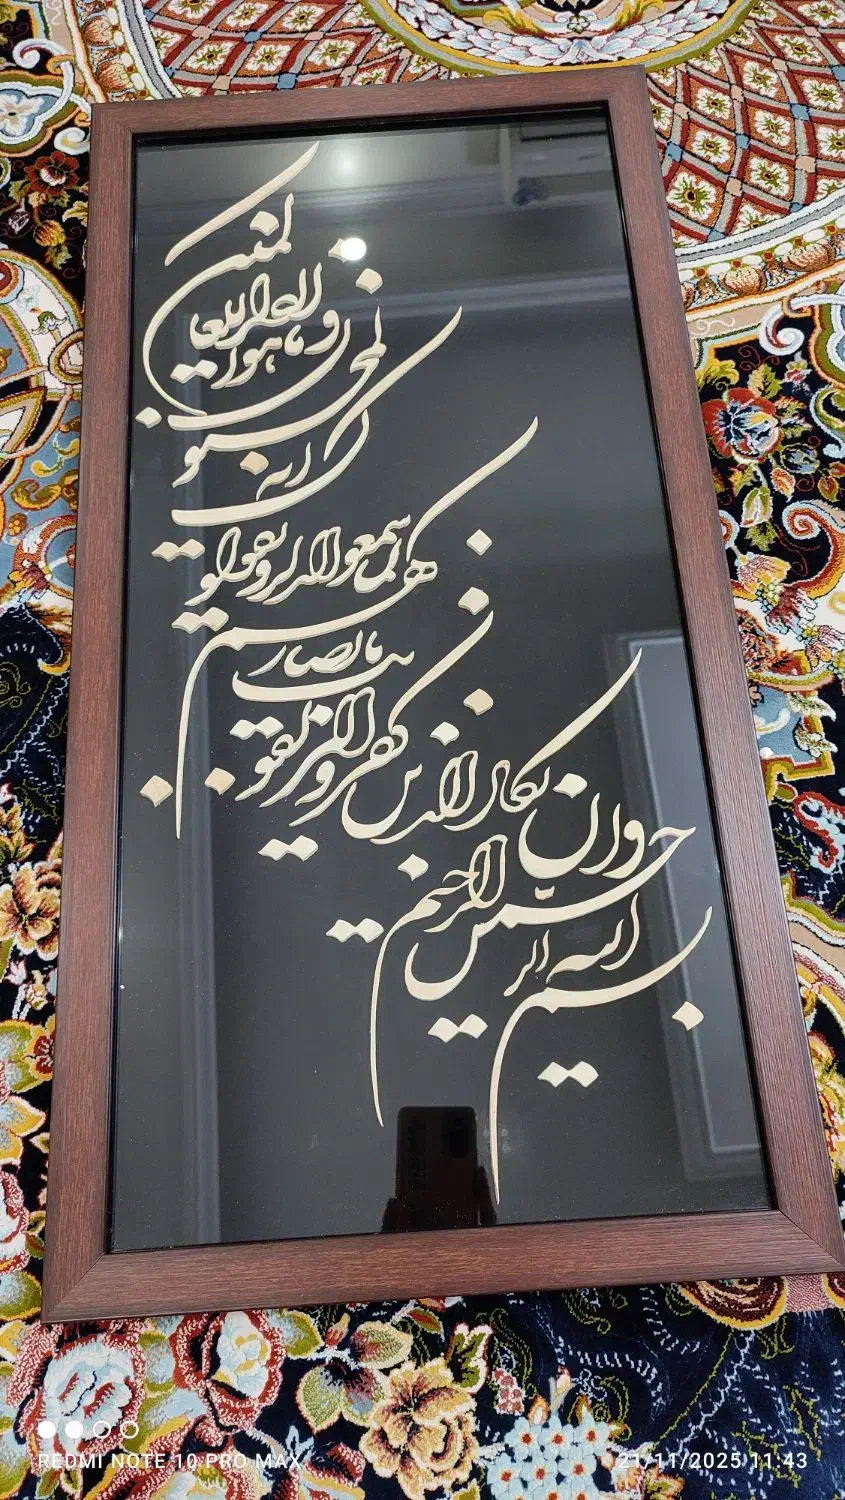 بسم الله الر
حمن الرحیم
وان یکاد الذین کفروا لیزلقو
نک بابصار
هم لما سمعوا الذکر و یقولو
ن انه
لمجنون
و ما هو الا ذکر للعا
لمین
REDMI NOTE 10 PRO MAX
21/11/2025 11:43